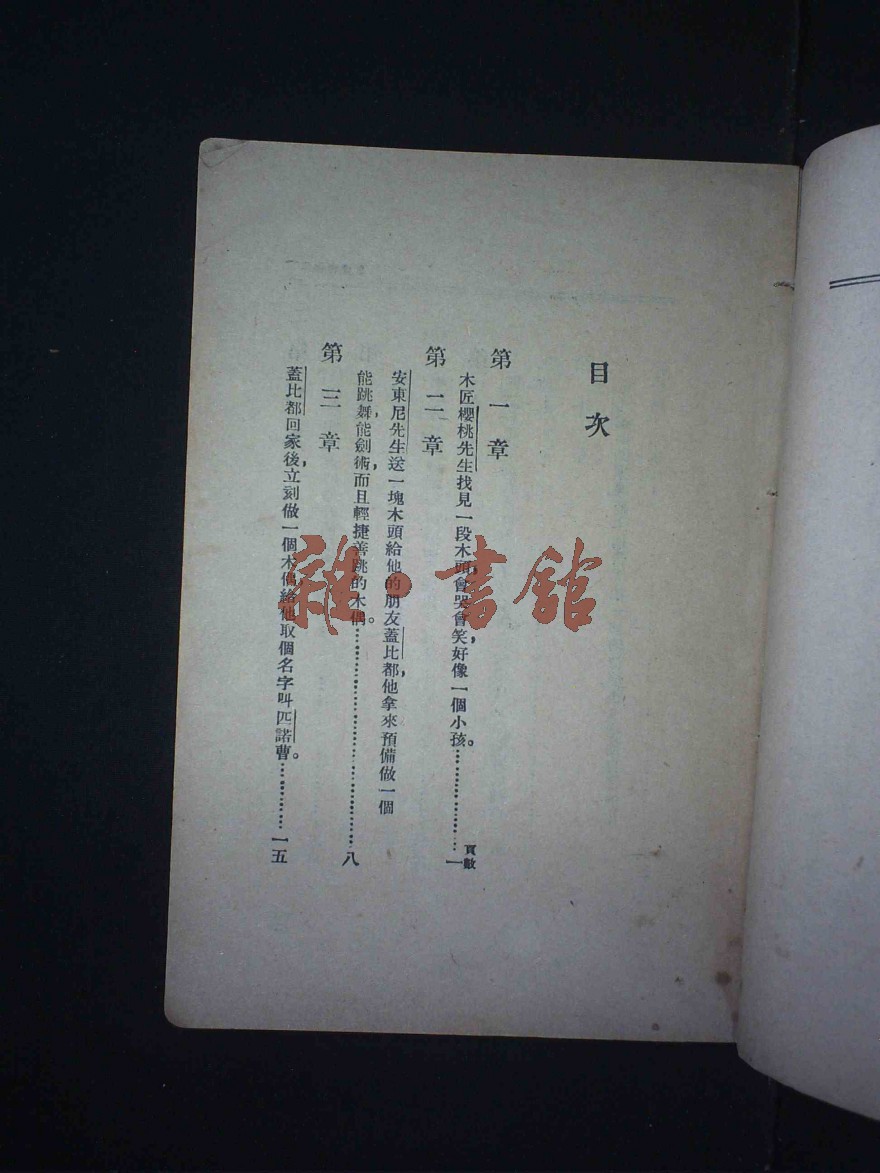 目次
頁數
第一章
木匠櫻桃先生找見一段木頭,會哭會笑,好像一個小孩。…………一
第二章
安東尼先生送一塊木頭給他的朋友蓋比都,他拿來預備做一個
能跳舞,能劍術,而且輕捷善跳的木偶。…………八
第三章
蓋比都回家後,立刻做一個木偶,給他取個名字叫匹諾曹。…………一五
雜·書館